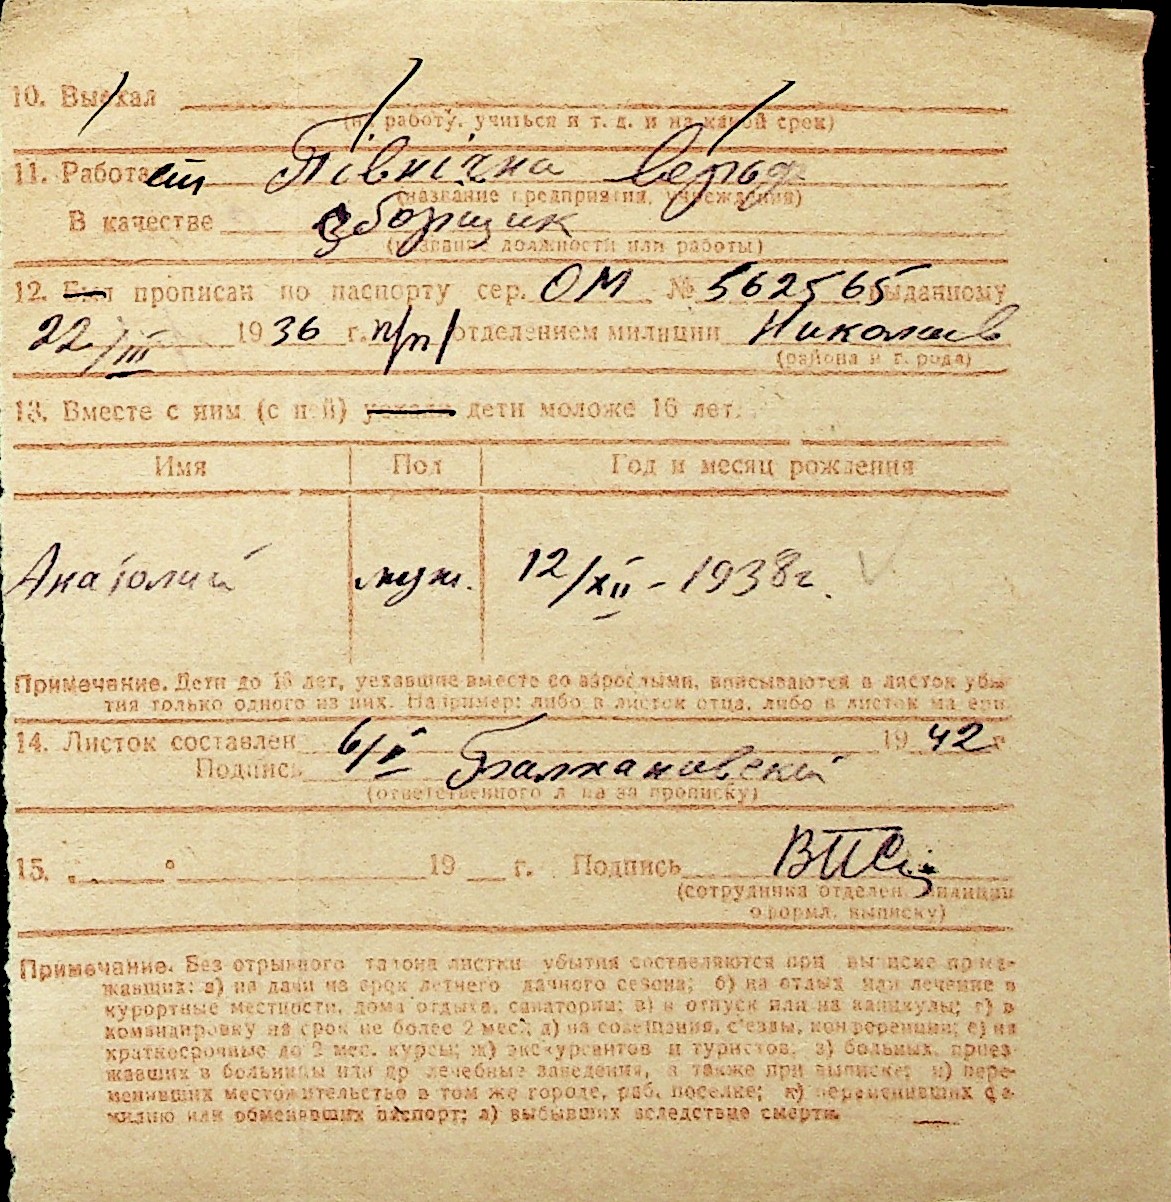 10. Выехал
(на работу, учиться и т. д. и на какой срок)
11. Работает Північна верфь
(название предприятия, учреждения)
В качестве зборщик
(название должности или работы)
12. Был прописан по паспорту сер. ОМ № 562565 выданному
22/III 1936 г. п/п/ отделением милиции Николаев
(района и города)
13. Вместе с ним (с ней) уехали дети моложе 16 лет.
Имя Пол Год и месяц рождения
Анатолий муж. 12/XII - 1938 г.
Примечание. Дети до 16 лет, уехавшие вместе со взрослыми, вписываются в листок убы-
тия только одного из них. Например: либо в листок отца, либо в листок матери.
14. Листок составлен 6/V 1942 г
Подпись
(ответственного лица за прописку)
15. „ “ 19 г. Подпись
(сотрудника отделен. милиции
оформл. выписку)
Примечание. Без отрывного талона листки убытия составляются при выписке прожи-
жавших: а) на дачи на срок летнего дачного сезона; б) на отдых или лечение в
курортные местности, дома отдыха, санатории; в) в отпуск или на каникулы; г) в
командировку на срок не более 2 мес.; д) на совещания, с'езды, конференции; е) на
краткосрочные до 2 мес. курсы; ж) экскурсантов и туристов, з) больных, приез-
жавших в больницы или др лечебные заведения, а также при выписке; и) пере-
менивших местожительство в том же городе, раб. поселке; к) переменивших фа-
милию или обменявших паспорт; л) выбывших вследствие смерти.